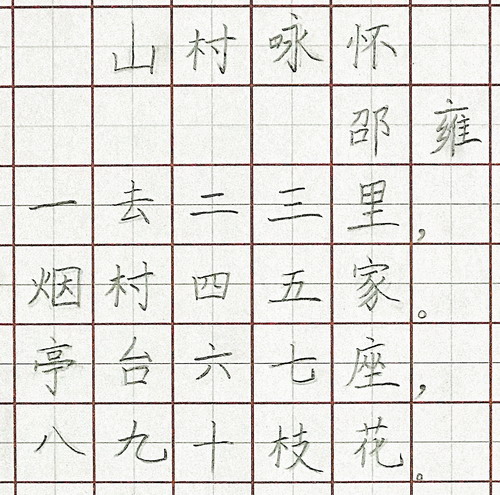 山村咏怀
邵雍
一去二三里，
烟村四五家。
亭台六七座，
八九十枝花。